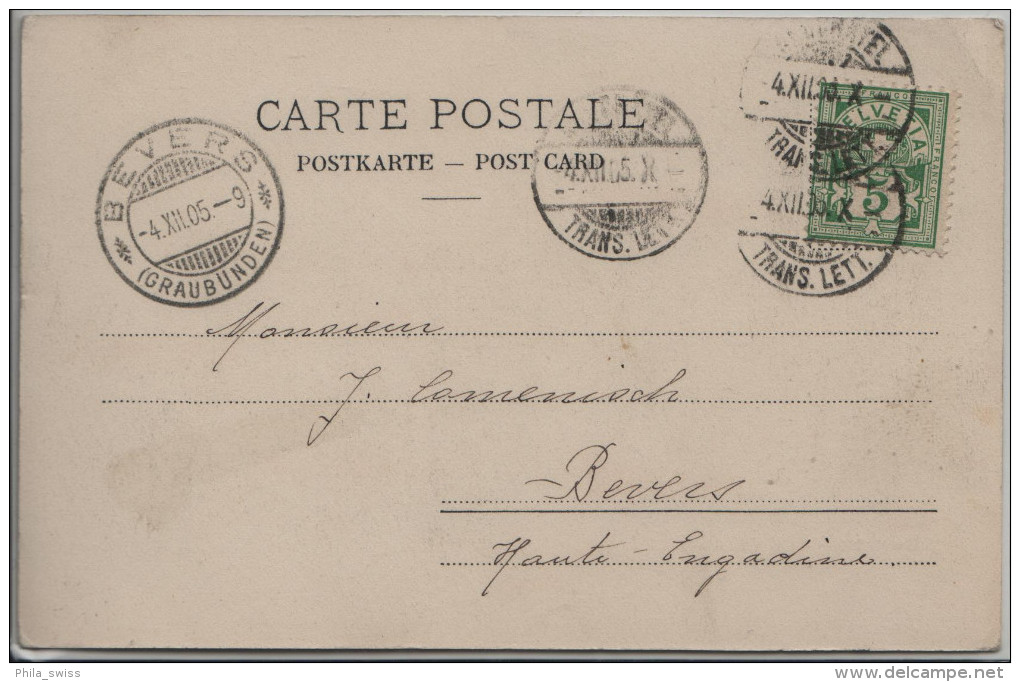 CARTE POSTALE
POSTKARTE — POST CARD
BEVERS
-4.XII.05.-9
(GRAUBÜNDEN)
-4.XII.05. X
TRANS. LETT.
-4.XII.05. X
TRANS. LETT.
4.XII.05. X
TRANS. LETT.
FRANCO
HELVETIA
5
Monsieur
J. Comenisch
Bevers
Haute-Engadine.
Phila_swiss
www.delcampe.net